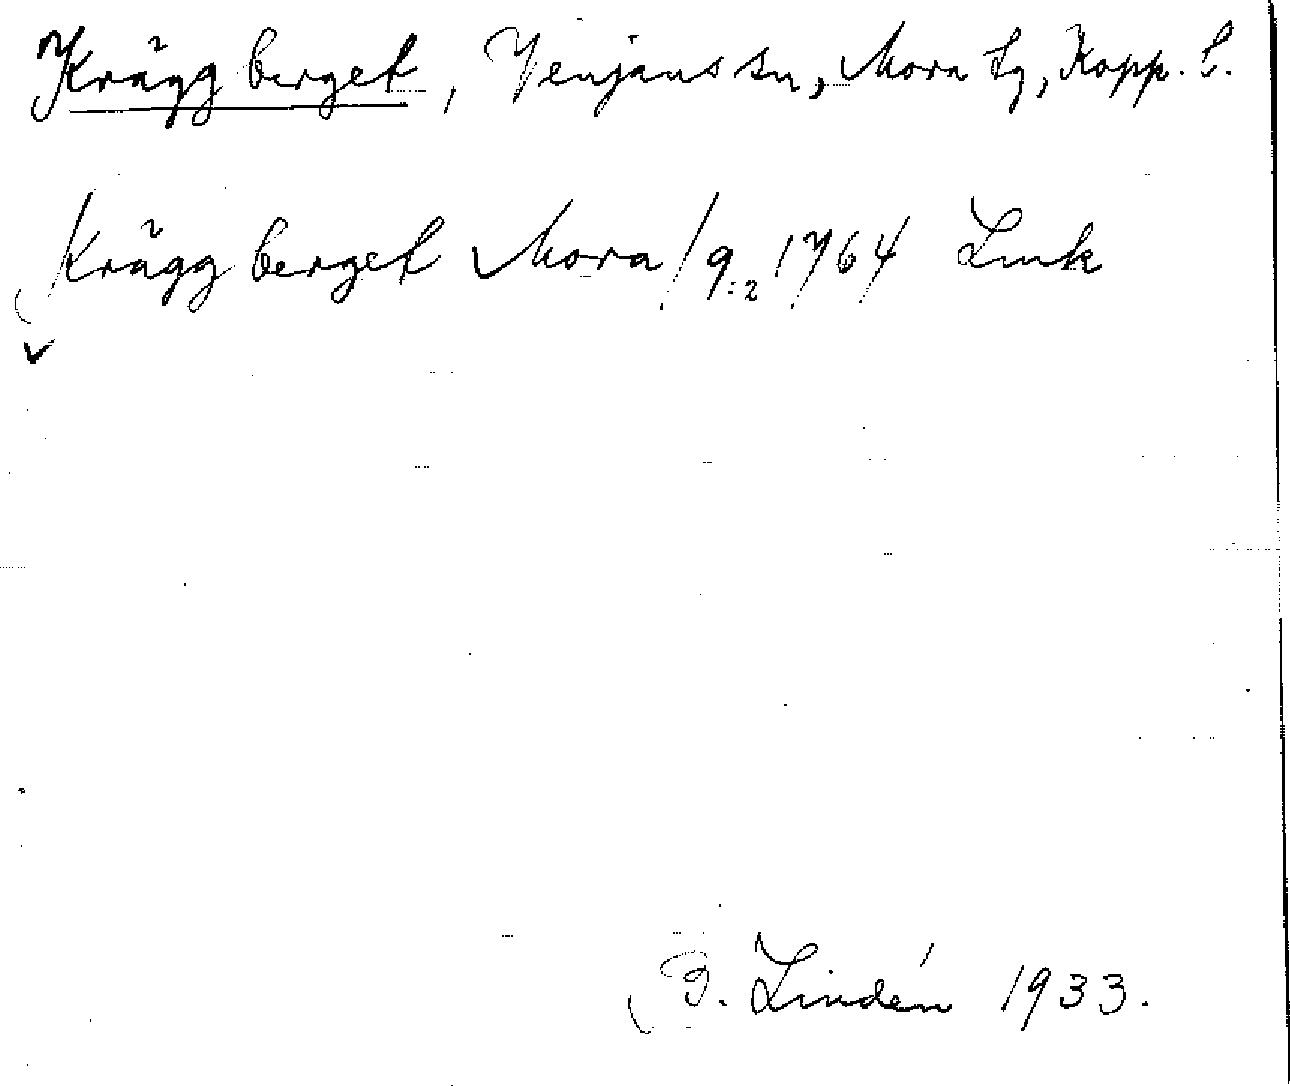 Kråggberget, Venjans sn, Mora tg, Kopp. l.
Kråggberget Mora / 9:2 1764 Lmk
B. Lindén 1933.